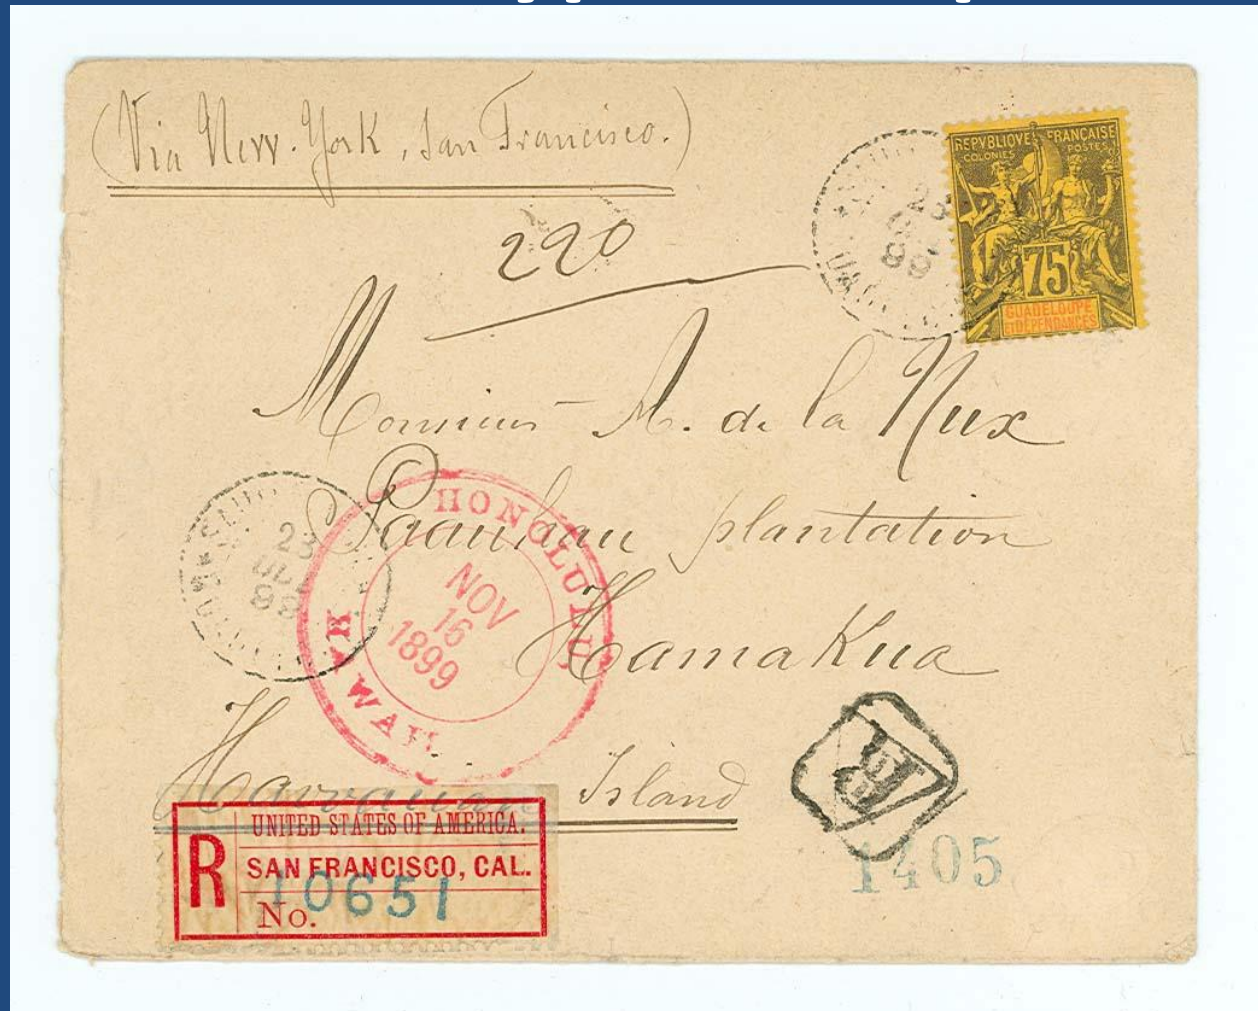 (Via New-York, San Francisco.)
REPVBLIQVE FRANÇAISE
COLONIES POSTES
75
GUADELOUPE
ET DEPENDANCES
23
99
220
Monsieur A. de la Nux
Paauhau plantation
Hamakua
Island
23
99
HONOLULU,
HAWAII
NOV
16
1899
R
1405
R
UNITED STATES OF AMERICA.
SAN FRANCISCO, CAL.
No.
10651